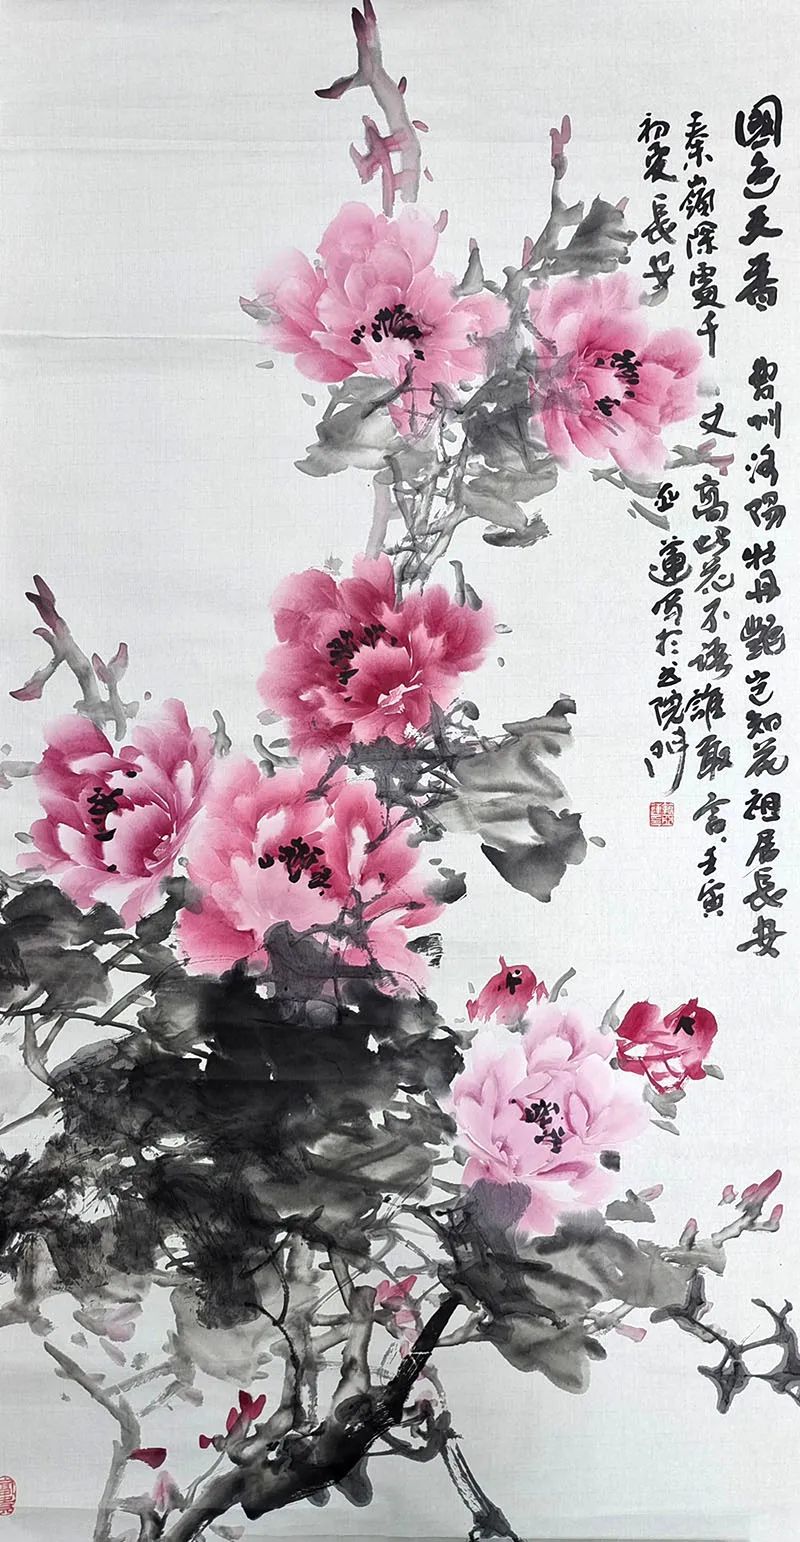 國色天香 曹州洛陽牡丹艷豈知花祖居長安
秦嶺深處千丈高此花不語誰敢言 壬寅
初夏長安 亚蓮写於书院门